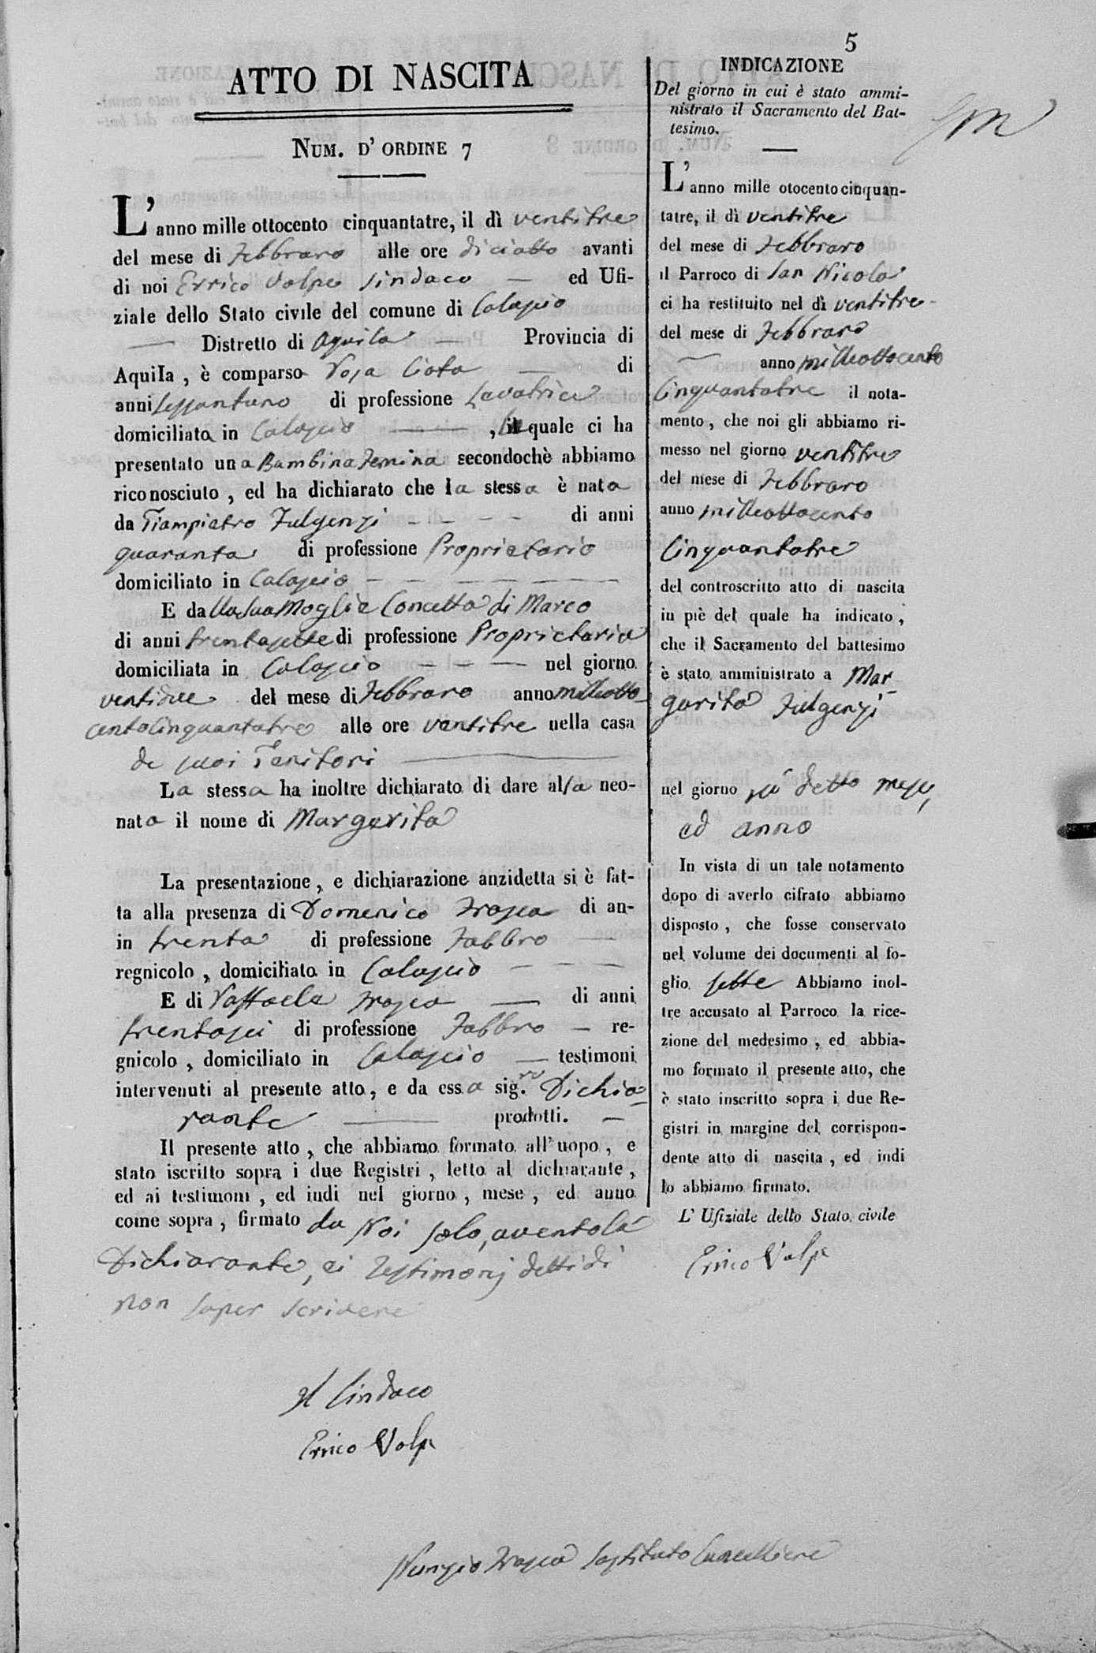 5
ATTO DI NASCITA
NUM. D' ORDINE 7
L'anno mille ottocento cinquantatre, il dì ventitre
del mese di Febbraro alle ore diciotto avanti
di noi Errico Volpe Sindaco — ed Ufi-
ziale dello Stato civile del comune di Calascio
— Distretto di Aquila — Provincia di
Aquila, è comparsa Rosa Ciota — di
anni Sessantuno di professione Lavatrice
domiciliata in Calascio — , la quale ci ha
presentato una Bambina Femina secondochè abbiamo
riconosciuto, ed ha dichiarato che la stessa è nata
da Giampietro Fulgenzi - - - - di anni
quaranta di professione Proprietario
domiciliato in Calascio - - - - - - -
E dalla sua Moglie Concetta di Marco
di anni trentasette di professione Proprietaria
domiciliata in Calascio - - - nel giorno
ventidue del mese di Febbraro anno milleotto-
centocinquantatre alle ore ventitre nella casa
de suoi Genitori —
La stessa ha inoltre dichiarato di dare alla neo-
nata il nome di Margarita
La presentazione, e dichiarazione anzidetta si è fat-
ta alla presenza di Domenico Frasca di an-
in trenta di professione Fabbro —
regnicolo, domiciliato in Calascio - - -
E di Raffaele Frasca — di anni
trentasei di professione Fabbro — re-
gnicolo, domiciliato in Calascio — testimoni
intervenuti al presente atto, e da essa sig.ra Dichia-
rante — prodotti. —
Il presente atto, che abbiamo formato all'uopo, e
stato iscritto sopra i due Registri, letto al dichiarante,
ed ai testimoni, ed indi nel giorno, mese, ed anno
come sopra, firmato da Noi solo, avento la
Dichiarante, ei Testimonj detti di
non saper scrivere
Il Sindaco
Errico Volpe
Nunzio Frasca Sostituto Cancelliere
INDICAZIONE
Del giorno in cui è stato ammi-
nistrato il Sacramento del Bat-
tesimo.
L'anno mille otocento cinquan-
tatre, il dì ventitre
del mese di Febbraro
il Parroco di San Nicola
ci ha restituito nel dì ventitre
del mese di Febbraro
— anno milleottocento
Cinquantatre il nota-
mento, che noi gli abbiamo ri-
messo nel giorno ventitre
del mese di Febbraro
anno milleottocento
Cinquantatre
del controscritto atto di nascita
in piè del quale ha indicato,
che il Sacramento del battesimo
è stato amministrato a Mar-
garita Fulgenzi
nel giorno su detto mese,
ed anno
In vista di un tale notamento
dopo di averlo cifrato abbiamo
disposto, che fosse conservato
nel volume dei documenti al fo-
glio sette Abbiamo inol-
tre accusato al Parroco la rice-
zione del medesimo, ed abbia-
mo formato il presente atto, che
è stato inscritto sopra i due Re-
gistri in margine del corrispon-
dente atto di nascita, ed indi
lo abbiamo firmato.
L' Ufiziale dello Stato civile
Errico Volpe